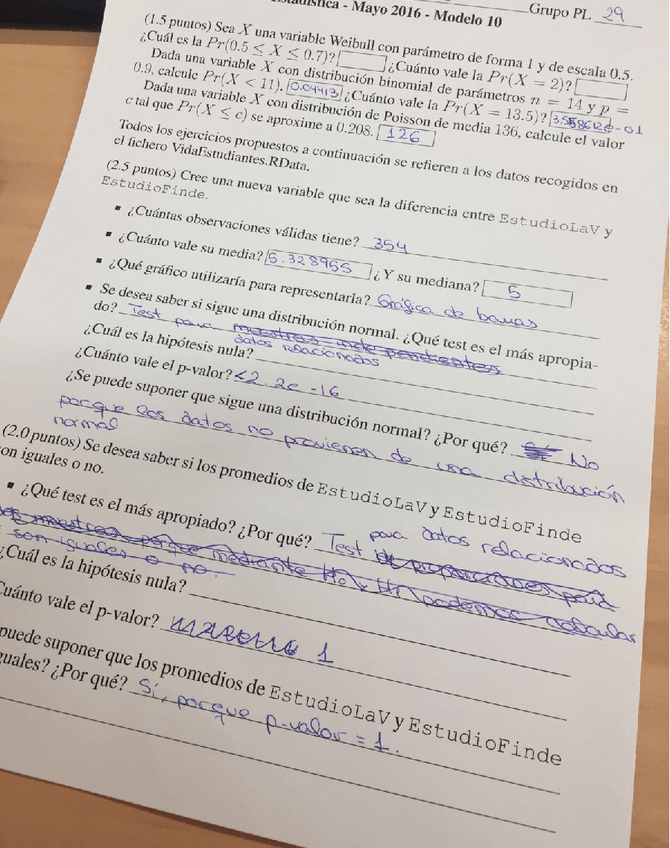 Estadística - Mayo 2016 - Modelo 10
Grupo PL 29
(1.5 puntos) Sea X una variable Weibull con parámetro de forma 1 y de escala 0.5.
¿Cuál es la Pr(0.5 ≤ X ≤ 0.7)? ¿Cuánto vale la Pr(X = 2)?
Dada una variable X con distribución binomial de parámetros n = 14 y p =
0.9, calcule Pr(X < 11). 0.04413 ¿Cuánto vale la Pr(X = 13.5)? 3.558612e-01
Dada una variable X con distribución de Poisson de media 136, calcule el valor
c tal que Pr(X ≤ c) se aproxime a 0.208. 126
Todos los ejercicios propuestos a continuación se refieren a los datos recogidos en
el fichero VidaEstudiantes.RData.
(2.5 puntos) Cree una nueva variable que sea la diferencia entre EstudioLaV y
EstudioFinde.
▪ ¿Cuántas observaciones válidas tiene? 354
▪ ¿Cuánto vale su media? 5.328955 ¿Y su mediana? 5
▪ ¿Qué gráfico utilizaría para representarla? Gráfica de barras
▪ Se desea saber si sigue una distribución normal. ¿Qué test es el más apropia-
do? Test para muestras independientes
datos relacionados
¿Cuál es la hipótesis nula?
¿Cuánto vale el p-valor? <2 2e -16
¿Se puede suponer que sigue una distribución normal? ¿Por qué? No
porque los datos no provienen de una distribución
normal
(2.0 puntos) Se desea saber si los promedios de EstudioLaV y EstudioFinde
son iguales o no.
▪ ¿Qué test es el más apropiado? ¿Por qué? Test para datos relacionados
de proporciones para
muestras porque mediante H0 y H1 podemos calcular
si son iguales o no.
¿Cuál es la hipótesis nula?
¿Cuánto vale el p-valor? 1
puede suponer que los promedios de EstudioLaV y EstudioFinde
iguales? ¿Por qué? Sí, porque p-valor = 1.